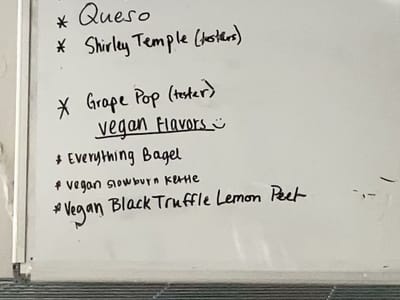 * Queso
* Shirley Temple (testers)
* Grape Pop (tester)
vegan Flavors
* Everything Bagel
* vegan slowburn kettle
* Vegan Black Truffle Lemon Peel